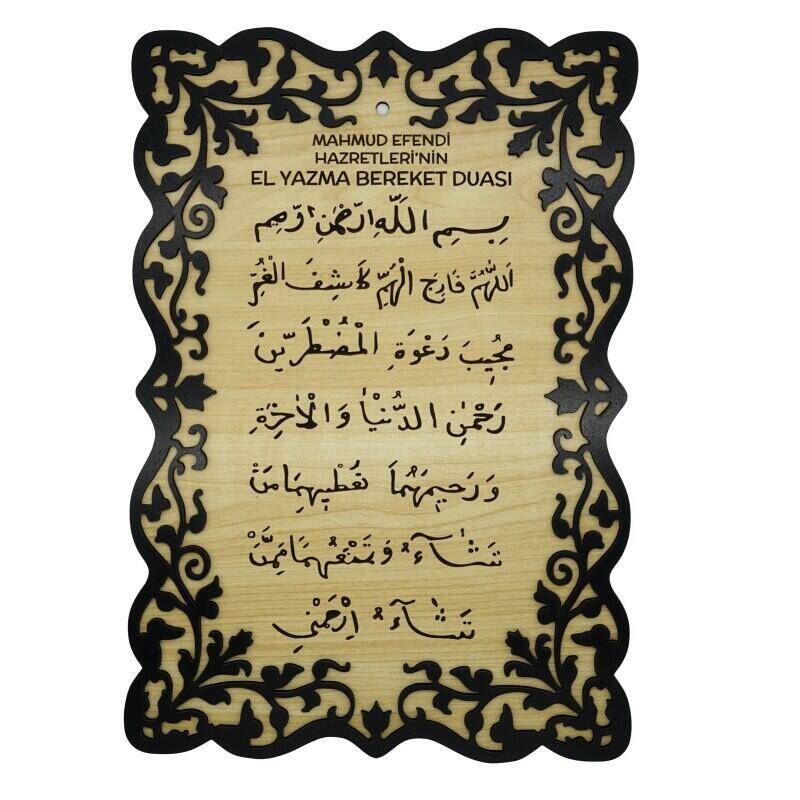 MAHMUD EFENDİ
HAZRETLERİ'NİN
EL YAZMA BEREKET DUASI
بِسِمِ اللّٰهِ الرَّحْمٰنِ الرَّحِيمِ
اَللّٰهُمَّ فَارِجَ الْهَمِّ كَاشِفَ الْغَمِّ
مُجِيبَ دَعْوَةِ الْمُضْطَرِّينَ
رَحْمٰنَ الدُّنْيَا وَالْاٰخِرَةِ
وَرَحِيمَهُمَا تُعْطِيهِمَا مَنْ
تَشَآءُ وَتَمْنَعُهُمَا مِمَّنْ
تَشَآءُ اِرْحَمْنِي